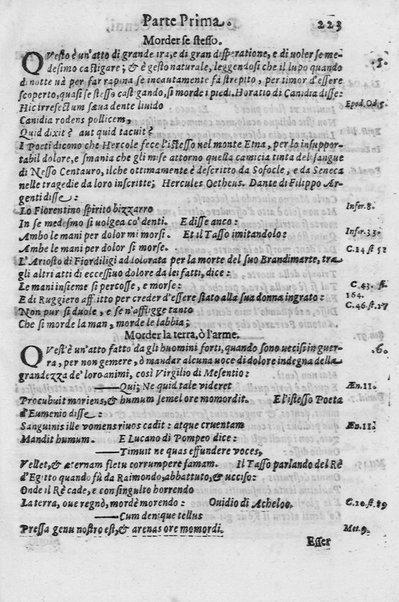 Parte Prima. 223
Morder se stesso.
QVesto è un'atto di grande ira, e di gran disperatione, e di uoler se me-
desimo castigare; & è gesto naturale, leggendosi che il lupo quando
di notte uà per far rapina se incautamente fa strepito, per timor d'essere
scoperto, quasi se stesso castigando, si morde i piedi. Horatio di Candia disse:
Hic irresectum sæua dente liuido
Epod. Od. 5.
Canidia rodens pollicem,
Quid dixit è aut quid tacuit?
I Poeti dicono che Hercole fece l'istesso nel monte Etna, per lo insuppor-
tabil dolore, e smania che gli mise attorno quella camicia tinta del sangue
di Nesso Centauro, il che ottimamente è descritto da Sofocle, e da Seneca
nelle tragedie da loro inscritte; Hercules Oetheus. Dante de Filippo Ar-
genti disse:
Lo Fiorentino spirito bizzarro
Infer. 8.
In se medesmo si uolgea co' denti. E disse anco:
Ambo le mani per dolor mi morsi. Et il Tasso imitandolo:
Infer. 33.
Ambe le mani per dolor si morse.
C. 14. st 52
L'Ariosto di Fiordiligi adolorata per la morte del suo Brandimarte, tra
gli altri atti di eccessiuo dolore da lei fatti, dice:
Le mani insieme si percosse, e morse:
C. 43. st
164.
E di Ruggiero afflitto per creder d'essere stato alla sua donna ingrato:
Non pur si duole, e se n'affligge tanto
C. 46. st. 27
Che si morde la man, morde le labbia;
Morder la terra, ò l'arme.
QVest'è un'atto fatto da gli huomini forti, quando sono uccisi in guer-
.60.
ra, per non gemere, ò mandar alcuna uoce di dolore indegna della
grandezza de' loro animi, così Virgilio di Mesentio:
——Qui; Ne quid tale videret
Æn. 11.
Procubuit moriens, & humum semel ore momordit. E l'istesso Poeta
d'Eumenio disse:
Sanguinis ille vomens riuos cadit: atque cruentam
Æn. 11.
Mandit humum. E Lucano di Pompeo dice:
——Timuit ne quas effundere voces,
Vellet, & æternam fletu corrumpere famam. Il Tasso parlando del Rè
d'Egitto quando fù da Raimondo, abbattuto, & ucciso:
Onde il Rè cade, e con singulto horrendo
La terra, oue regnò, mordè morendo: Ouidio di Atheloo.
C. 20. st 89
——Cum denque tellus
Met. 9.
Pressa genu nostro est, & arenas ore momordi.
Esser